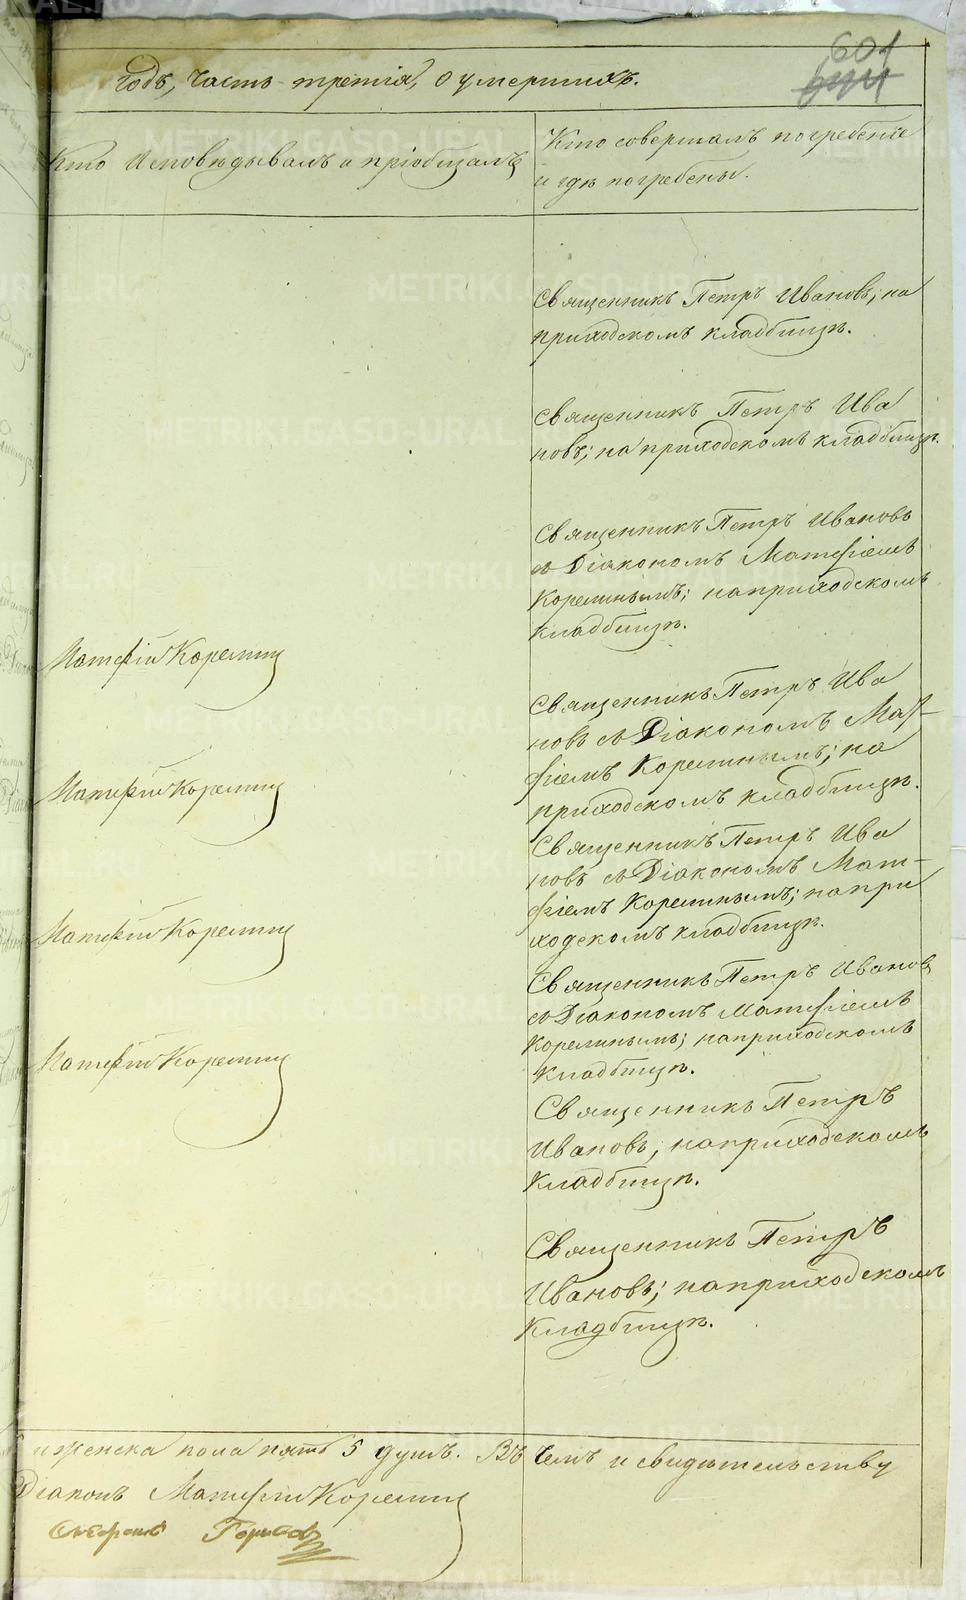 601
годъ, часть третія, о умершихъ.
Кто исповѣдывалъ и пріобщалъ
Кто совершалъ погребеніе
и гдѣ погребены.
Священникъ Петръ Ивановъ; на
приходскомъ кладбищѣ.
Священникъ Петръ Ива
новъ; на приходскомъ кладбищѣ.
Священникъ Петръ Ивановъ
съ Діакономъ Матфіемъ
Корелинымъ; на приходскомъ
кладбищѣ.
Матфій Корелинъ
Священникъ Петръ Ива
новъ съ Діакономъ Мат-
фіемъ Корелинымъ; на
приходскомъ кладбищѣ.
Матфій Корелинъ
Священникъ Петръ Ива
новъ съ Діакономъ Мат-
фіемъ Корелинымъ; на при
ходскомъ кладбищѣ.
Матфій Корелинъ
Священникъ Петръ Ивановъ
съ Діакономъ Матфіемъ
Корелинымъ; на приходскомъ
кладбищѣ.
Матфій Корелинъ
Священникъ Петръ
Ивановъ; на приходскомъ
кладбищѣ.
Священникъ Петръ
Ивановъ; на приходскомъ
кладбищѣ.
и женска пола пять 5 душъ. Въ чемъ и свидѣтельству
Діаконъ Матфій Корелинъ
METRIKI.GASO-URAL.RU